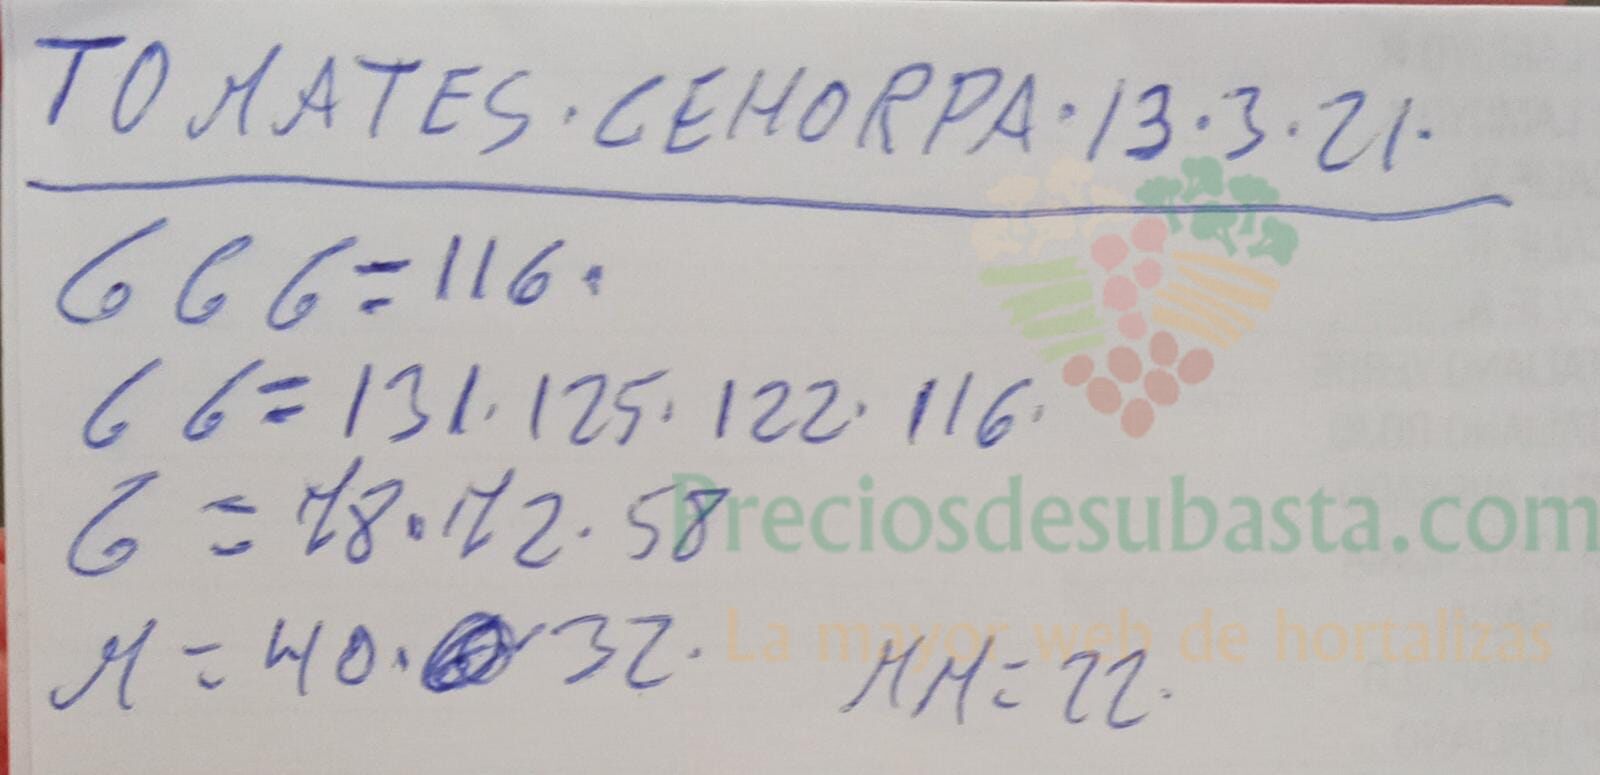 TOMATES. CEHORPA. 13.3.21.
G G G = 116.
G G = 131. 125. 122. 116.
G = 78. 72. 58
Preciosdesubasta.com
M = 40. 32. MM = 22.
La mayor web de hortalizas